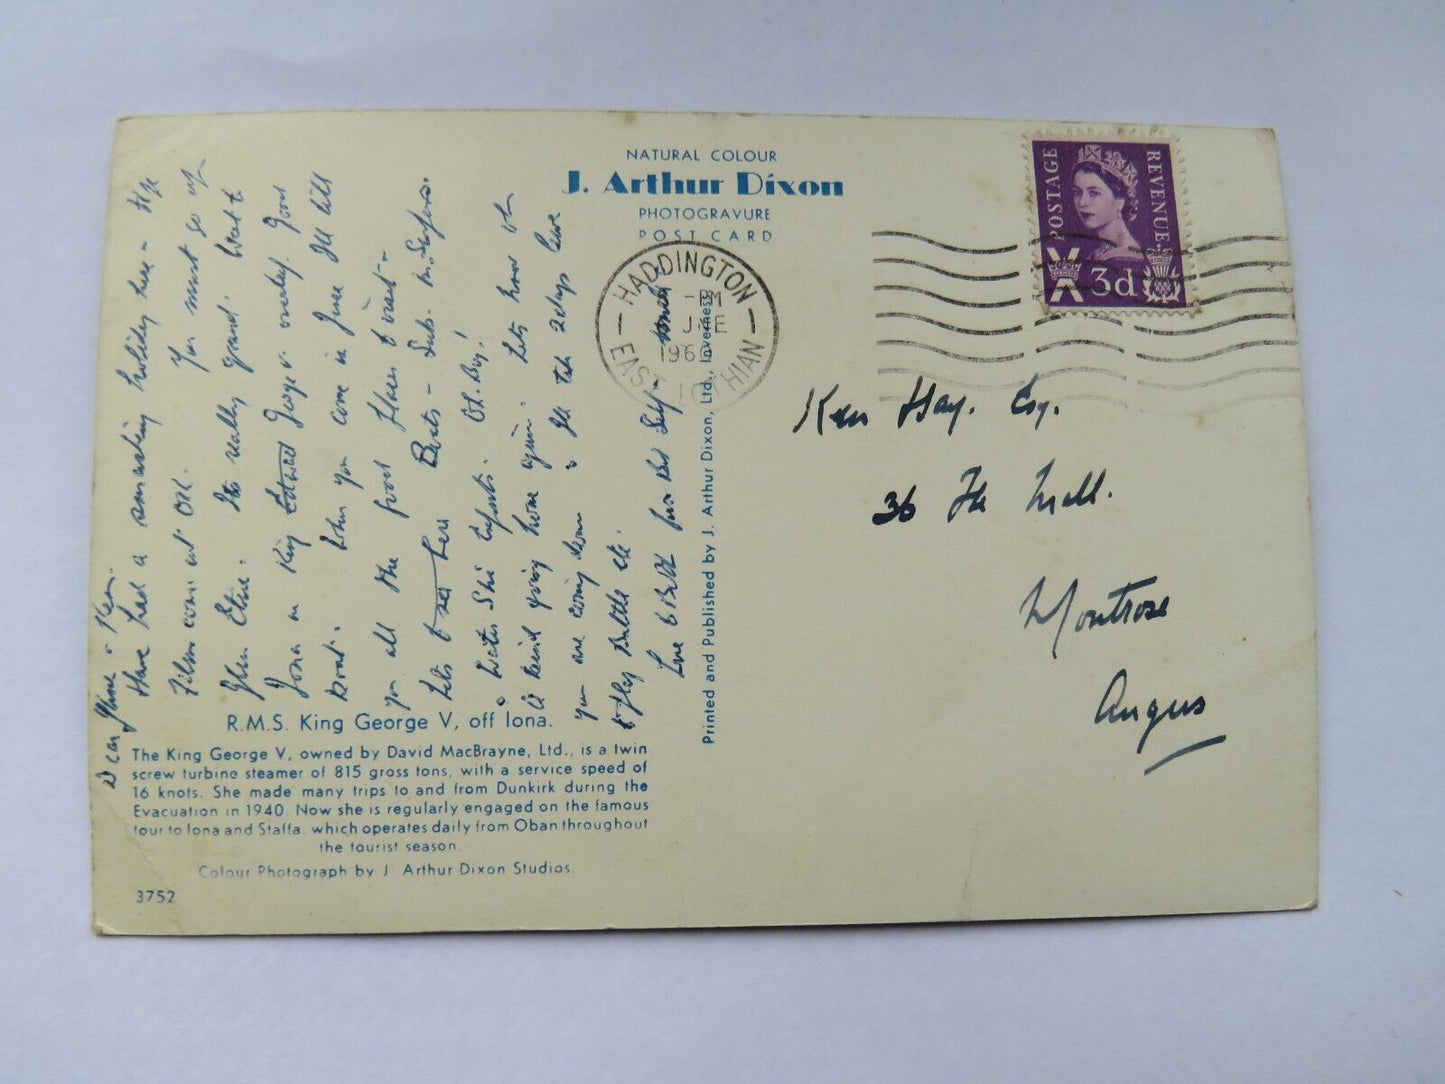 NATURAL COLOUR
J. Arthur Dixon
PHOTOGRAVURE
POST CARD
POSTAGE
REVENUE
3d
HADDINGTON
PM
JNE
196
EAST LOTHIAN
Ken Hay. Esq.
36 The Mall.
Montrose
Angus
Dear & Ken.
Have had a smashing holiday here - Hope
Films come out OK. You must go up
Glen Etive. Its really grand. Went to
Iona on King Edward George V. nearby. Good
boat. When you come in June I'll tell
you all the good places to visit -
Lets to see here Boats - Subs. M. Sweepers.
Water Ski Experts. Oh. Boy!
Lets know when
you are coming down & I'll take 2 days leave
Love to Both from Self -
R.M.S. King George V, off Iona.
The King George V, owned by David MacBrayne, Ltd., is a twin
screw turbine steamer of 815 gross tons, with a service speed of
16 knots. She made many trips to and from Dunkirk during the
Evacuation in 1940. Now she is regularly engaged on the famous
tour to Iona and Staffa, which operates daily from Oban throughout
the tourist season.
Colour Photograph by J Arthur Dixon Studios.
3752
Printed and Published by J. Arthur Dixon, Ltd., Inverness